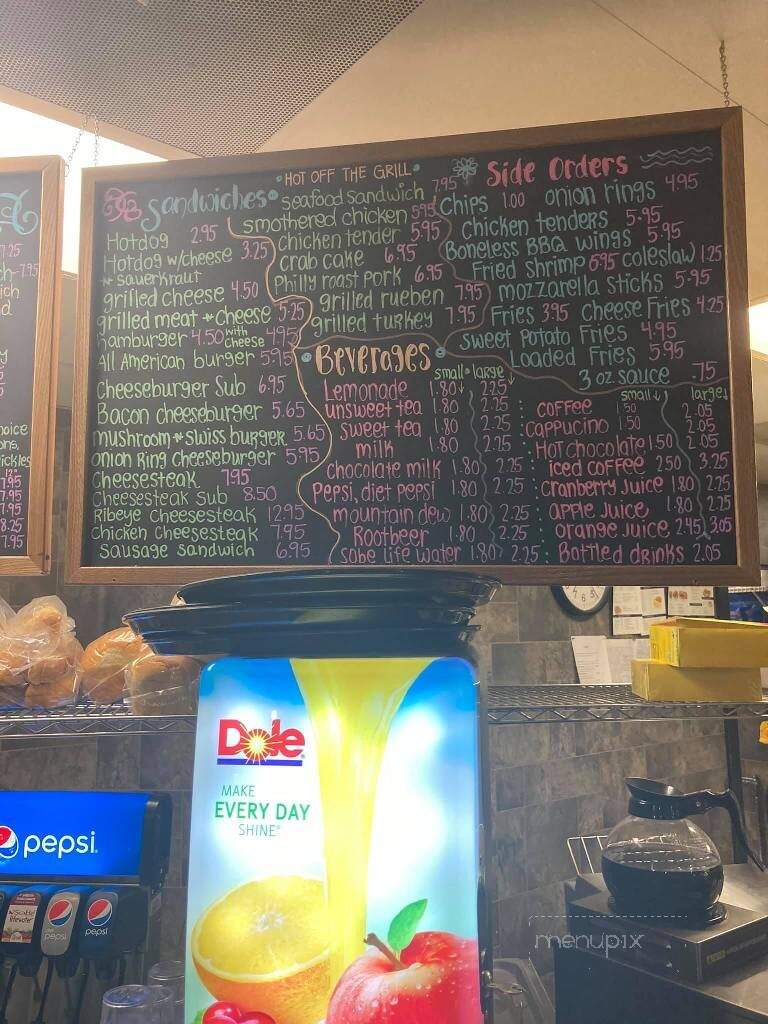 7.25
ch-7.95
ich
d
y
5
5
noice
ons,
ickles
7.95
7.95
7.95
8.25
7.95
Sandwiches
Hotdog 2.95
Hotdog w/cheese 3.25
+ sauerkraut
grilled cheese 4.50
grilled meat + cheese 5.25
Hamburger 4.50 with cheese 4.95
All American burger 5.95
Cheeseburger Sub 6.95
Bacon cheeseburger 5.65
mushroom + swiss burger 5.65
onion Ring cheeseburger 5.95
Cheesesteak 7.95
Cheesesteak sub 8.50
Ribeye Cheesesteak 12.95
Chicken Cheesesteak 7.95
Sausage sandwich 6.95
HOT OFF THE GRILL
seafood sandwich 7.95
smothered chicken 5.95
chicken tender 5.95
crab cake 6.95
Philly roast pork 6.95
grilled rueben 7.95
grilled turkey 7.95
Side Orders
Chips 1.00 onion rings 4.95
Chicken tenders 5.95
Boneless BBQ wings 5.95
Fried shrimp 6.95 coleslaw 1.25
mozzarella sticks 5.95
Fries 3.95 Cheese Fries 4.25
sweet Potato Fries 4.95
Loaded Fries 5.95
3 oz. sauce .75
Beverages
small large
Lemonade 1.80 2.25
unsweet tea 1.80 2.25
sweet tea 1.80 2.25
milk 1.80 2.25
chocolate milk 1.80 2.25
Pepsi, diet pepsi 1.80 2.25
mountain dew 1.80 2.25
Rootbeer 1.80 2.25
Sobe life water 1.80 2.25
small large
coffee 1.50 2.05
cappucino 1.50 2.05
Hot chocolate 1.50 2.05
iced coffee 2.50 3.25
cranberry Juice 1.80 2.25
apple Juice 1.80 2.25
orange Juice 2.45 3.05
Bottled drinks 2.05
Dole
MAKE
EVERY DAY
SHINE®
pepsi
SoBe
lifewater
pepsi
pepsi
menupix